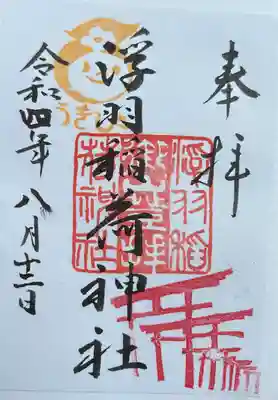 奉拝
浮羽稲荷神社
令和四年八月十三日
うきは
浮羽稲
荷神社